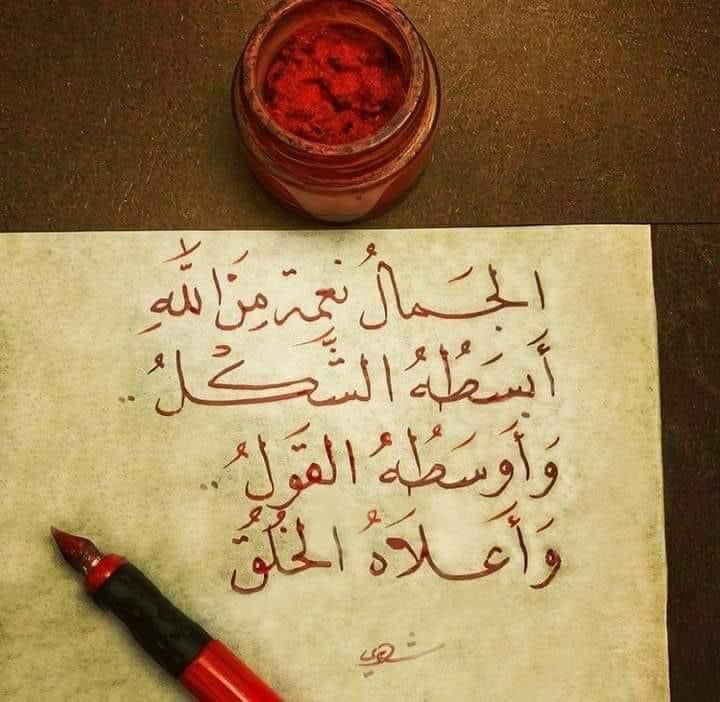 الجَمالُ نعمة مِنَ اللَّهِ
أَبسَطُهُ الشَّكْلُ ..
وَأَوسَطُهُ القَولُ ..
وَأَعلاَهُ الخُلُقُ